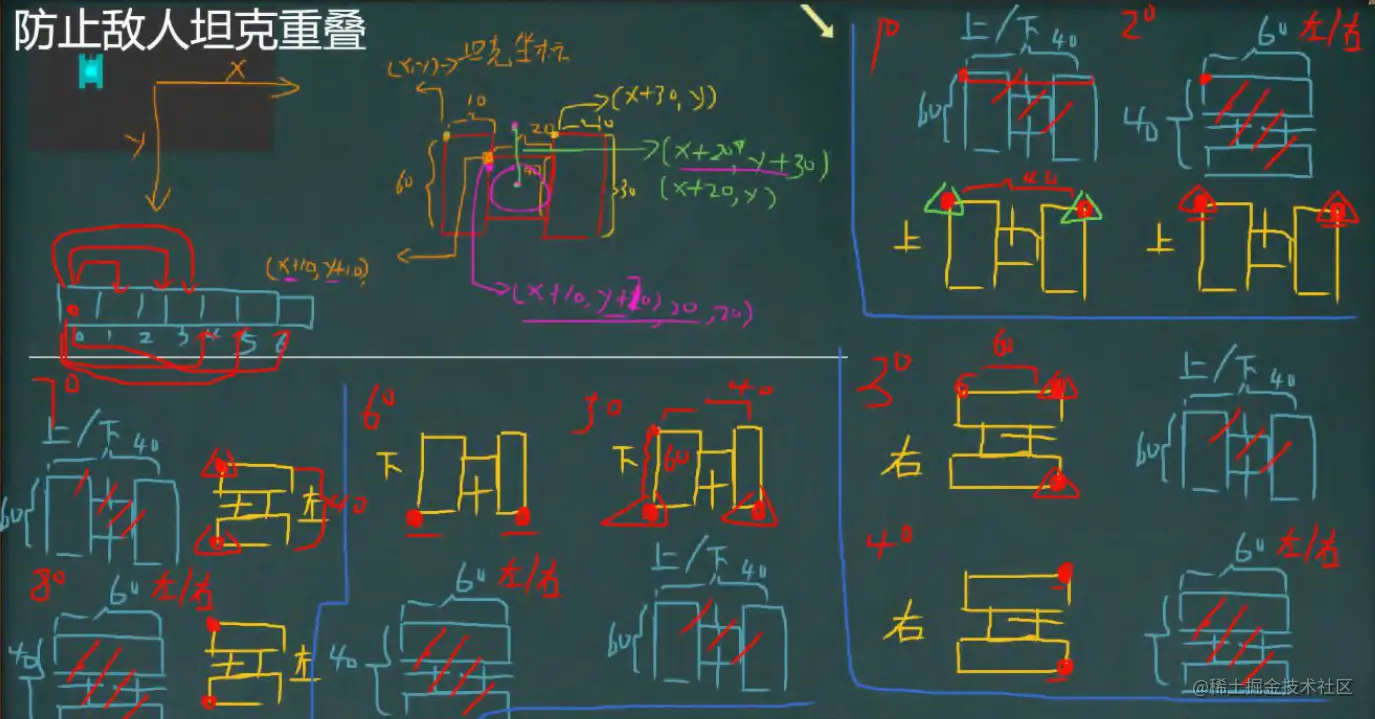 防止敌人坦克重叠
x
y
(x,y)→坦克坐标
10
20
10
60
40
30
(x+30, y)
(x+20, y+30)
(x+20, y)
(x+10, y+10)
0 1 2 3 4 5 6
1°
上/下 40
60
上
40
2°
60 左/右
40
上
3°
60
右
上/下 40
60
4°
右
60 左/右
上/下 40
60
左
40
6°
下
60 左/右
40
下
40
60
上/下 40
60
8°
60 左/右
40
左
@稀土掘金技术社区